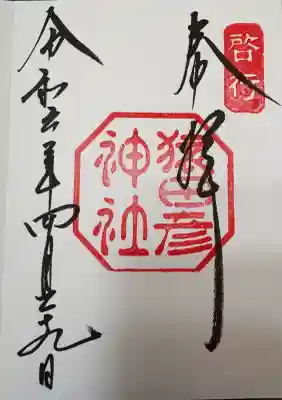 啓行
奉拝
猿田彦
神社
令和六年四月二十九日